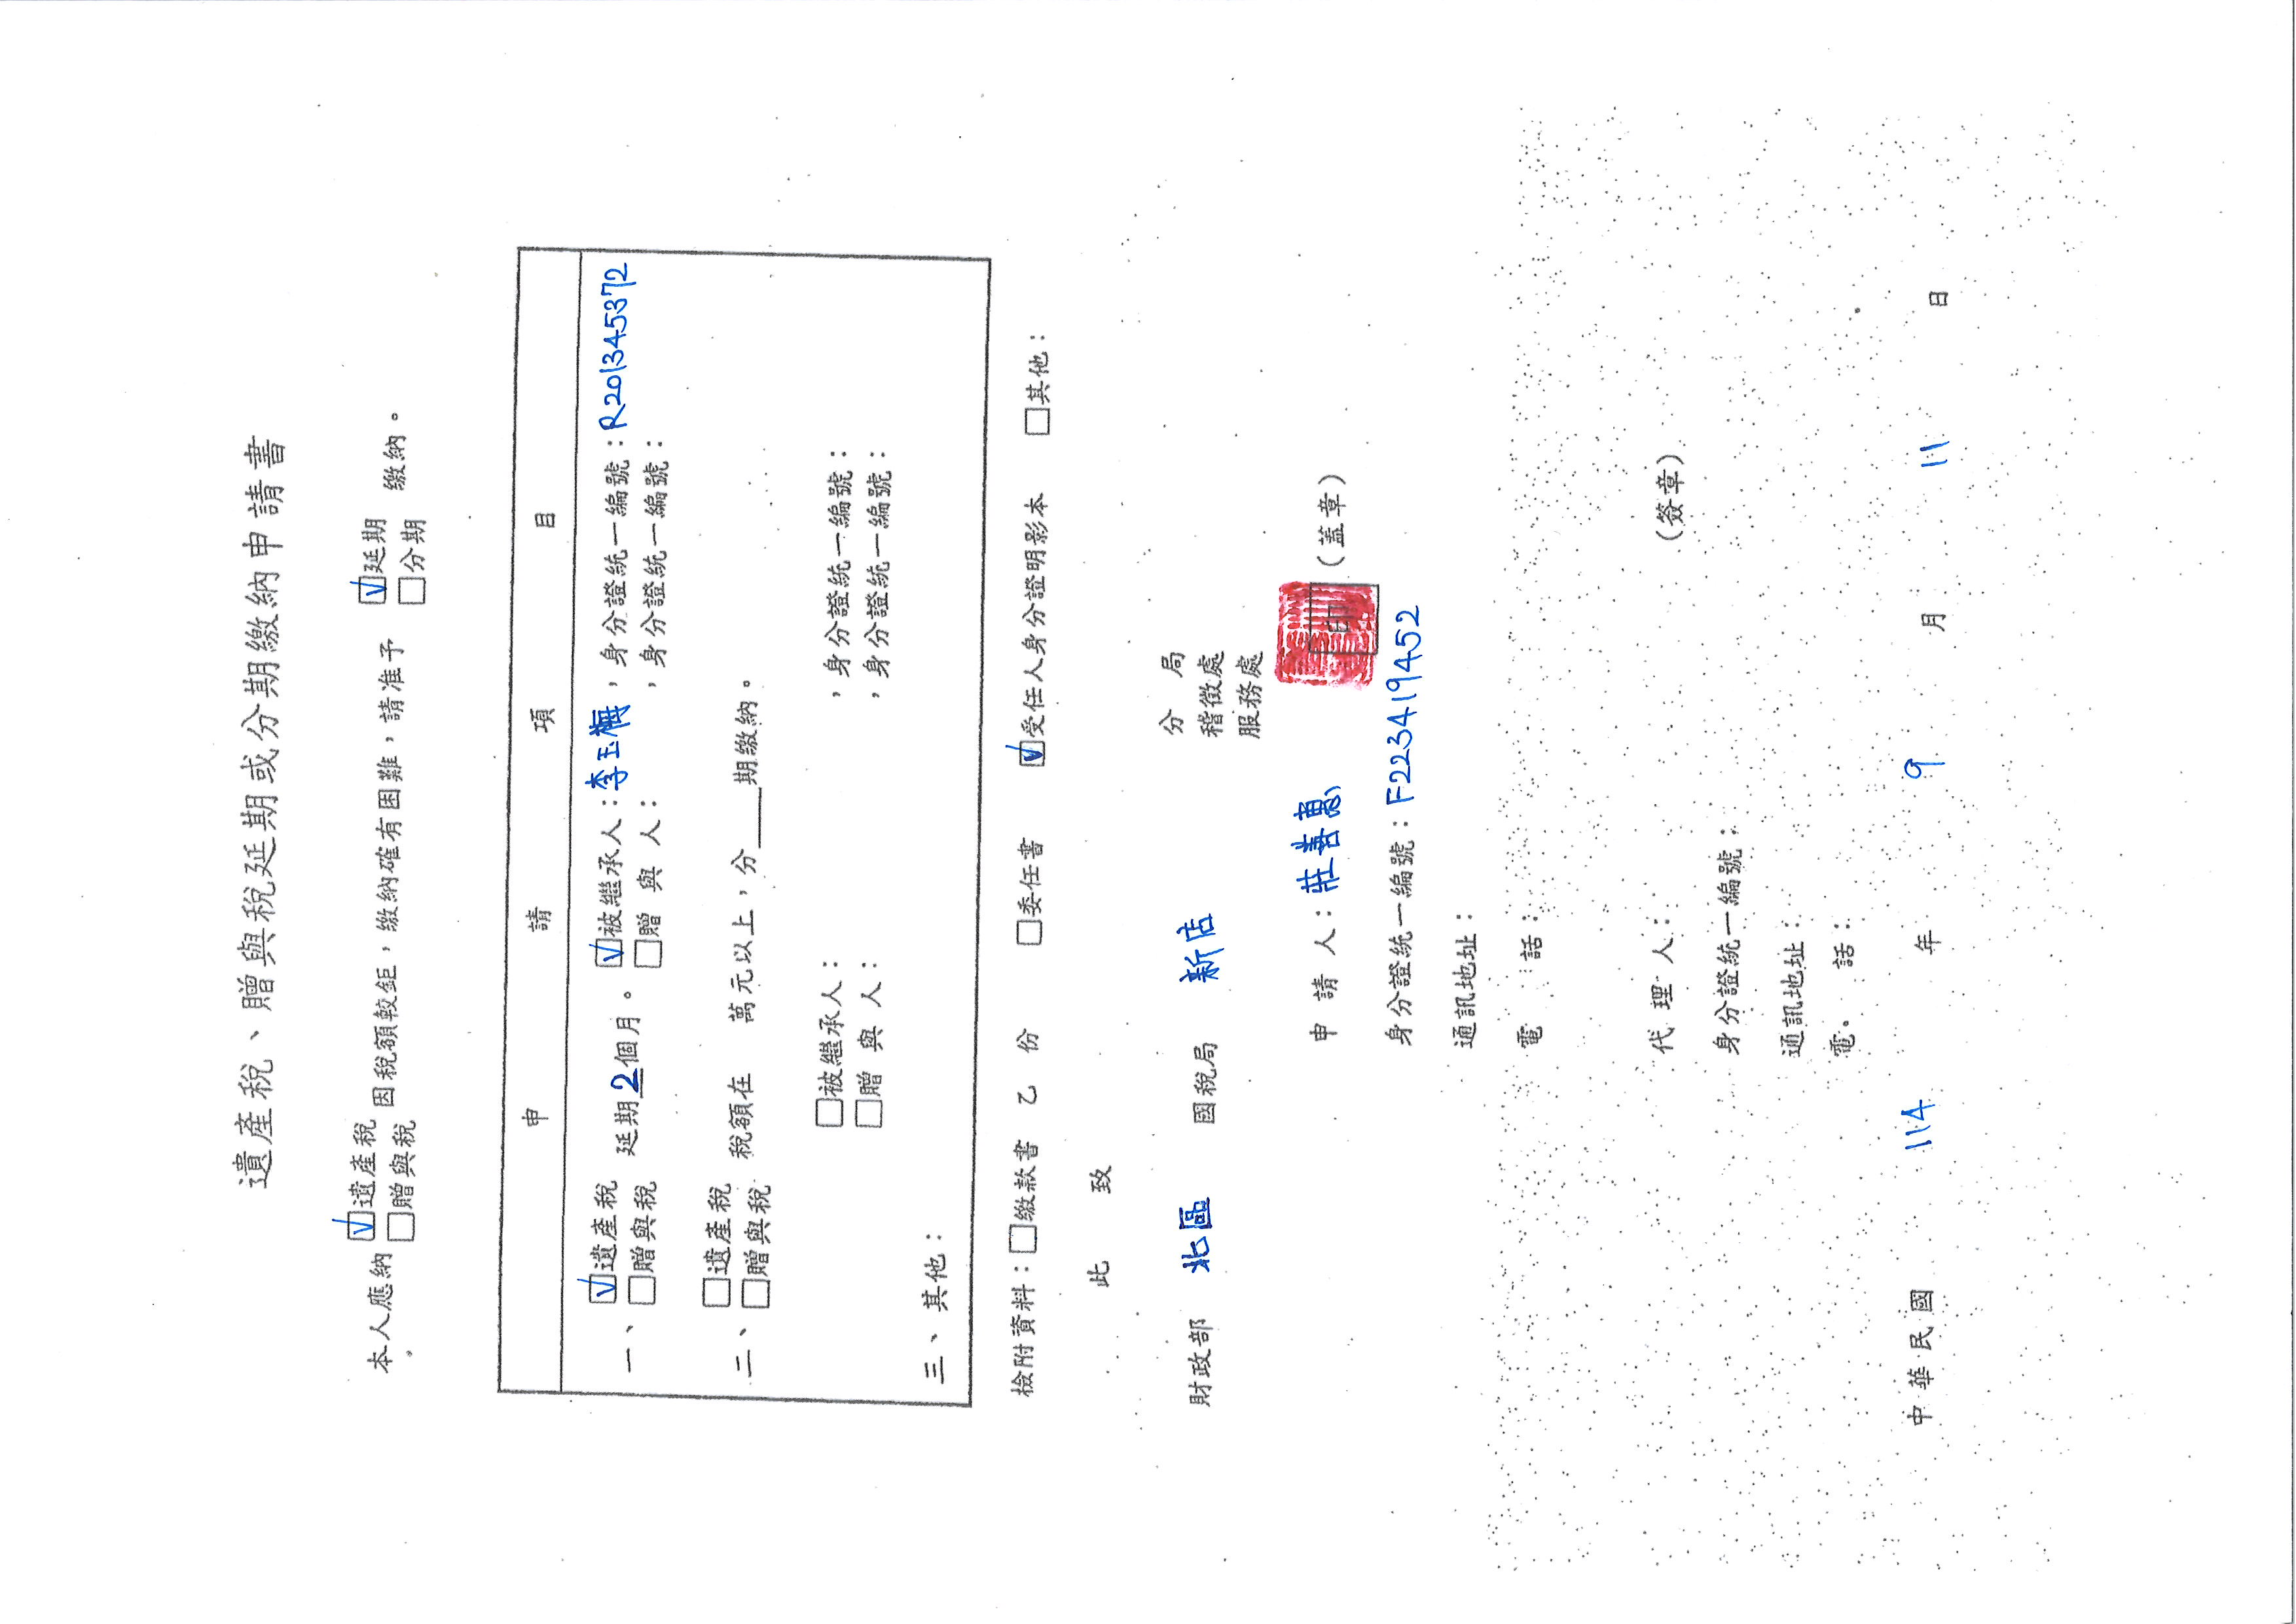 遺產稅、贈與稅延期或分期繳納申請書
本人應納 ☑遺產稅 ☐贈與稅 因稅額較鉅,繳納確有困難,請准予 ☑延期 ☐分期 繳納。
申請項目
一、☑遺產稅 ☐贈與稅 延期2個月。 ☑被繼承人:李玉梅,身分證統一編號:R201345372
☐贈與人: ,身分證統一編號:
二、☐遺產稅 ☐贈與稅 稅額在 萬元以上,分___期繳納。
☐被繼承人: ,身分證統一編號:
☐贈與人: ,身分證統一編號:
三、其他:
檢附資料:☐繳款書 乙 份 ☐委任書 ☑受任人身分證明影本 ☐其他:
此 致
財政部 北區 國稅局 新店 分局
稽徵處
服務處
申請人:莊善惠 印 (蓋章)
身分證統一編號:F223419452
通訊地址:
電話:
代理人: (簽章)
身分證統一編號:
通訊地址:
電話:
中華民國 114 年 9 月 11 日